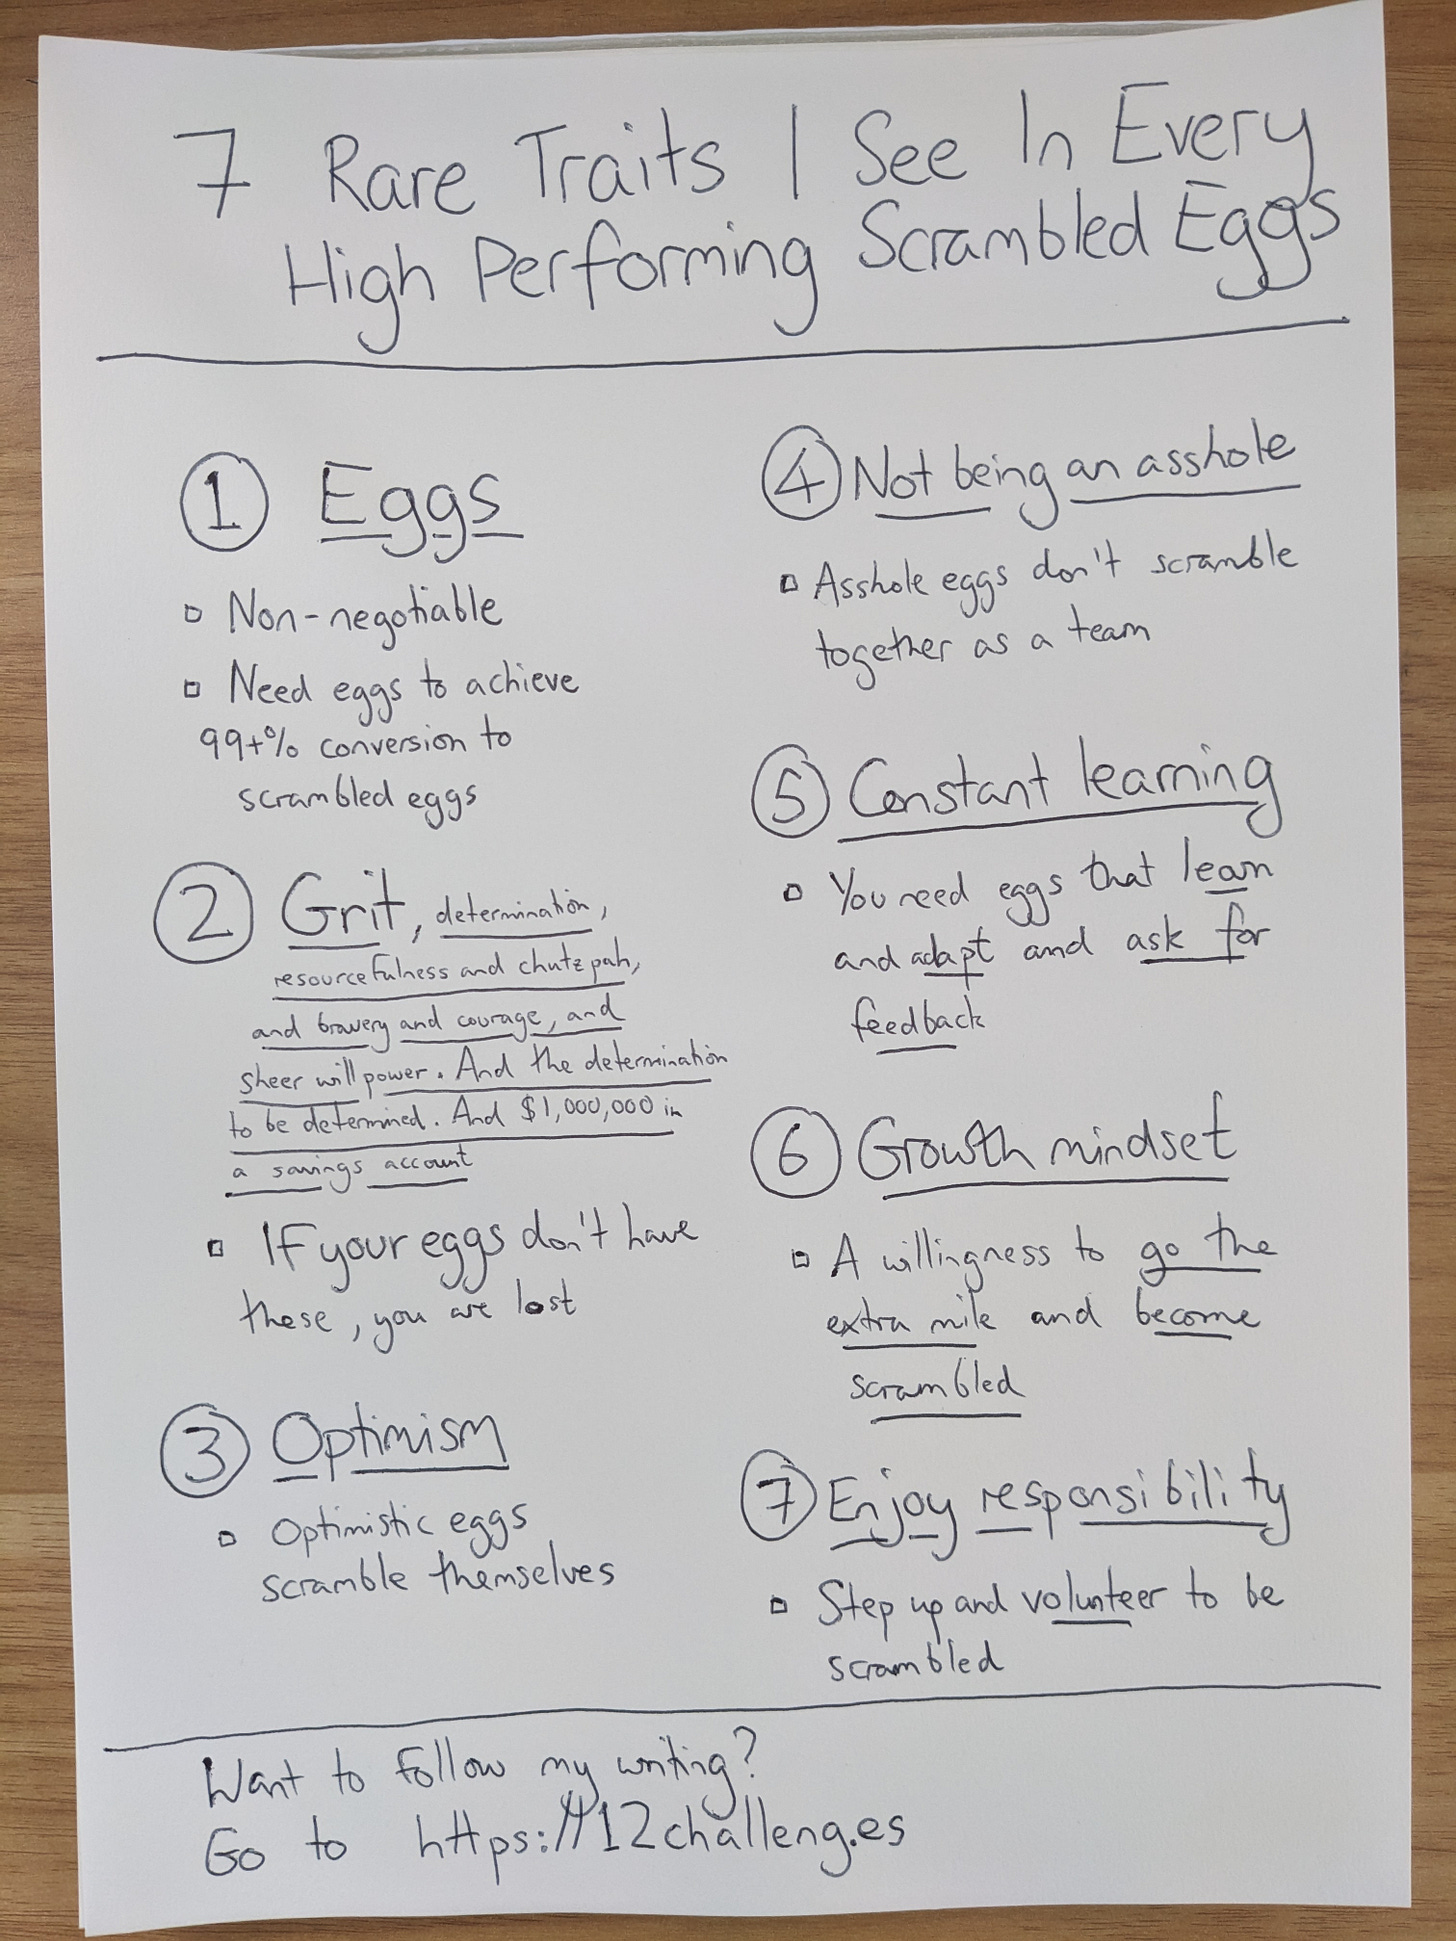 7 Rare Traits I See In Every
High Performing Scrambled Eggs
1 Eggs
Non-negotiable
Need eggs to achieve
99+% conversion to
scrambled eggs
2 Grit, determination,
resourcefulness and chutzpah,
and bravery and courage, and
sheer willpower. And the determination
to be determined. And $1,000,000 in
a savings account
If your eggs don't have
these, you are lost
3 Optimism
Optimistic eggs
scramble themselves
4 Not being an asshole
Asshole eggs don't scramble
together as a team
5 Constant learning
You need eggs that learn
and adapt and ask for
feedback
6 Growth mindset
A willingness to go the
extra mile and become
scrambled
7 Enjoy responsibility
Step up and volunteer to be
scrambled
Want to follow my writing?
Go to https://12challeng.es